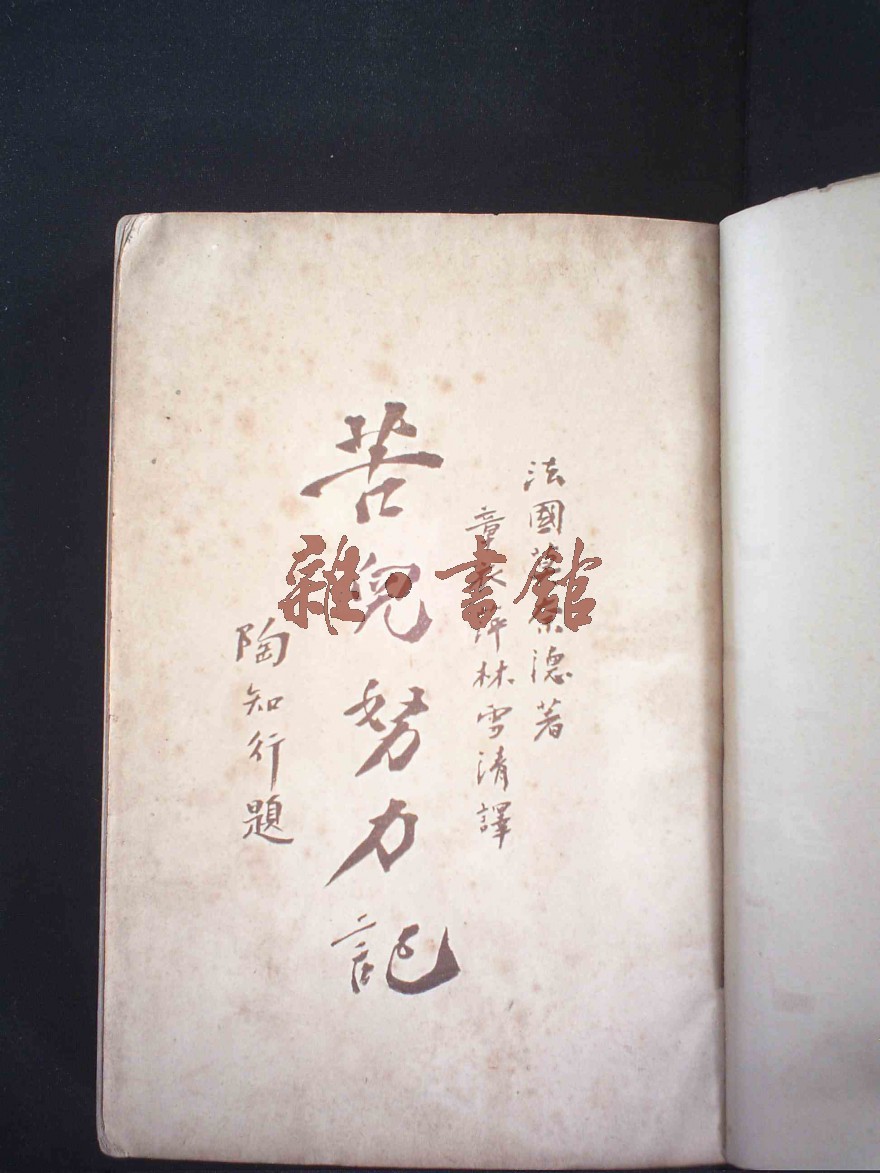 法國 德著
章衣萍林雪清譯
苦兒努力記
陶知行題
雜·書館